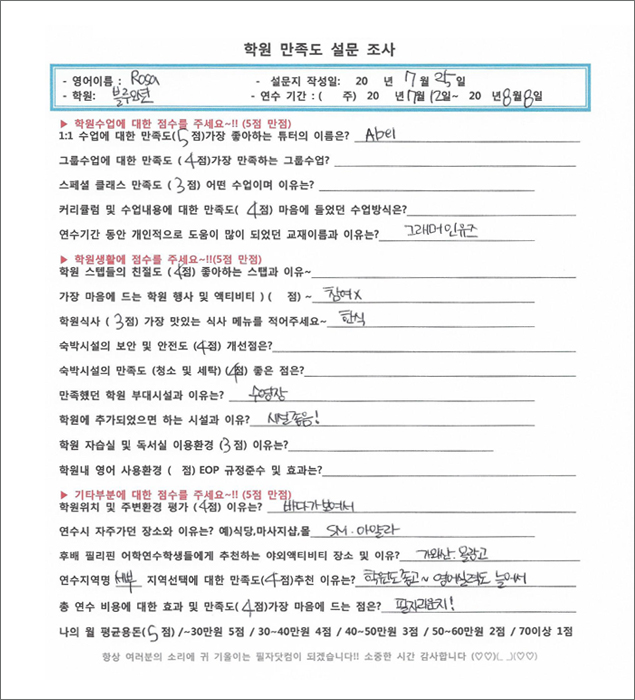 학원 만족도 설문 조사
- 영어이름 : Rosa - 설문지 작성일: 20 년 7월 25일
- 학원: 블루오션 - 연수 기간 : ( 주) 20 년 7월 12일~ 20 년 8월 8일
▶ 학원수업에 대한 점수를 주세요~!! (5점 만점)
1:1 수업에 대한 만족도(5점)가장 좋아하는 튜터의 이름은? Abel
그룹수업에 대한 만족도 (4점)가장 만족하는 그룹수업?
스페셜 클래스 만족도 (3점) 어떤 수업이며 이유는?
커리큘럼 및 수업내용에 대한 만족도( 4점) 마음에 들었던 수업방식은?
연수기간 동안 개인적으로 도움이 많이 되었던 교재이름과 이유는? 그래머인유즈
▶ 학원생활에 점수를 주세요~!!(5점 만점)
학원 스텝들의 친절도 (4점) 좋아하는 스탭과 이유~
가장 마음에 드는 학원 행사 및 액티비티 ) ( 점) ~ 참여x
학원식사 ( 3점) 가장 맛있는 식사 메뉴를 적어주세요~ 한식
숙박시설의 보안 및 안전도 (4점) 개선점은?
숙박시설의 만족도 (청소 및 세탁) (4점) 좋은 점은?
만족했던 학원 부대시설과 이유는? 수영장
학원에 추가되었으면 하는 시설과 이유? 시설좋음!
학원 자습실 및 독서실 이용환경 (3점) 이유는?
학원내 영어 사용환경 ( 점) EOP 규정준수 및 효과는?
▶ 기타부분에 대한 점수를 주세요~!! (5점 만점)
학원위치 및 주변환경 평가 (4점) 이유는? 바다가보여서
연수시 자주가던 장소와 이유는? 예)식당,마사지샵,몰 SM. 아얄라
후배 필리핀 어학연수학생들에게 추천하는 야외액티비티 장소 및 이유? 가와산. 올랑고
연수지역명 세부 지역선택에 대한 만족도(4점)추천 이유는? 학원도좋고~ 영어실력도 늘어서
총 연수 비용에 대한 효과 및 만족도(4점)가장 마음에 드는 점은? 필자라운지!
나의 월 평균용돈(5점) /~30만원 5점 / 30~40만원 4점 / 40~50만원 3점 / 50~60만원 2점 / 70이상 1점
항상 여러분의 소리에 귀 기울이는 필자닷컴이 되겠습니다!! 소중한 시간 감사합니다 (♡♡)(_ _)(♡♡)